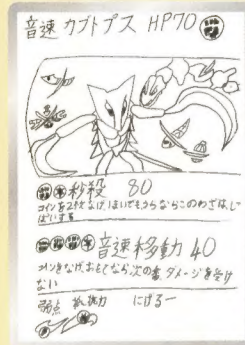 音速 カブトプス HP70
秒殺 80
コインを2枚なげ、1まいでもうらならこのわざはし
ぱいする
音速移動 40
コインをなげ、おもてなら次の番、ダメージを受け
ない
弱点 抵抗力 にげるー